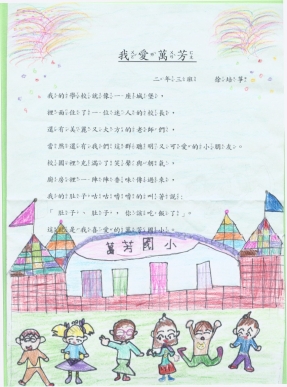 我愛萬芳
二年三班 徐培箏
我的學校就像一座城堡,
裡面住了一位迷人的校長,
還有美麗又大方的老師們,
當然還有我們這群聰明又可愛的小朋友。
校園裡充滿了笑聲與朝氣,
廚房裡一陣陣香味傳過來,
我的肚子咕咕嚕嚕的叫著說:
「肚子、肚子,你該吃飯了」。
這就是我喜愛的萬芳國小。
萬芳國小